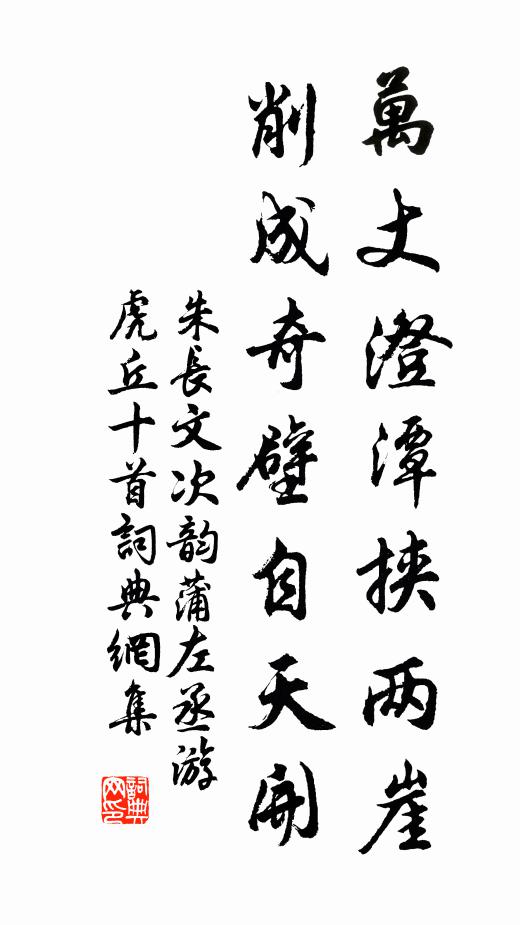 萬丈澄潭挾两崖
削成奇壁自天開
朱長文次韵蒲左丞游
虎丘十首詞典網集
詞典
网印